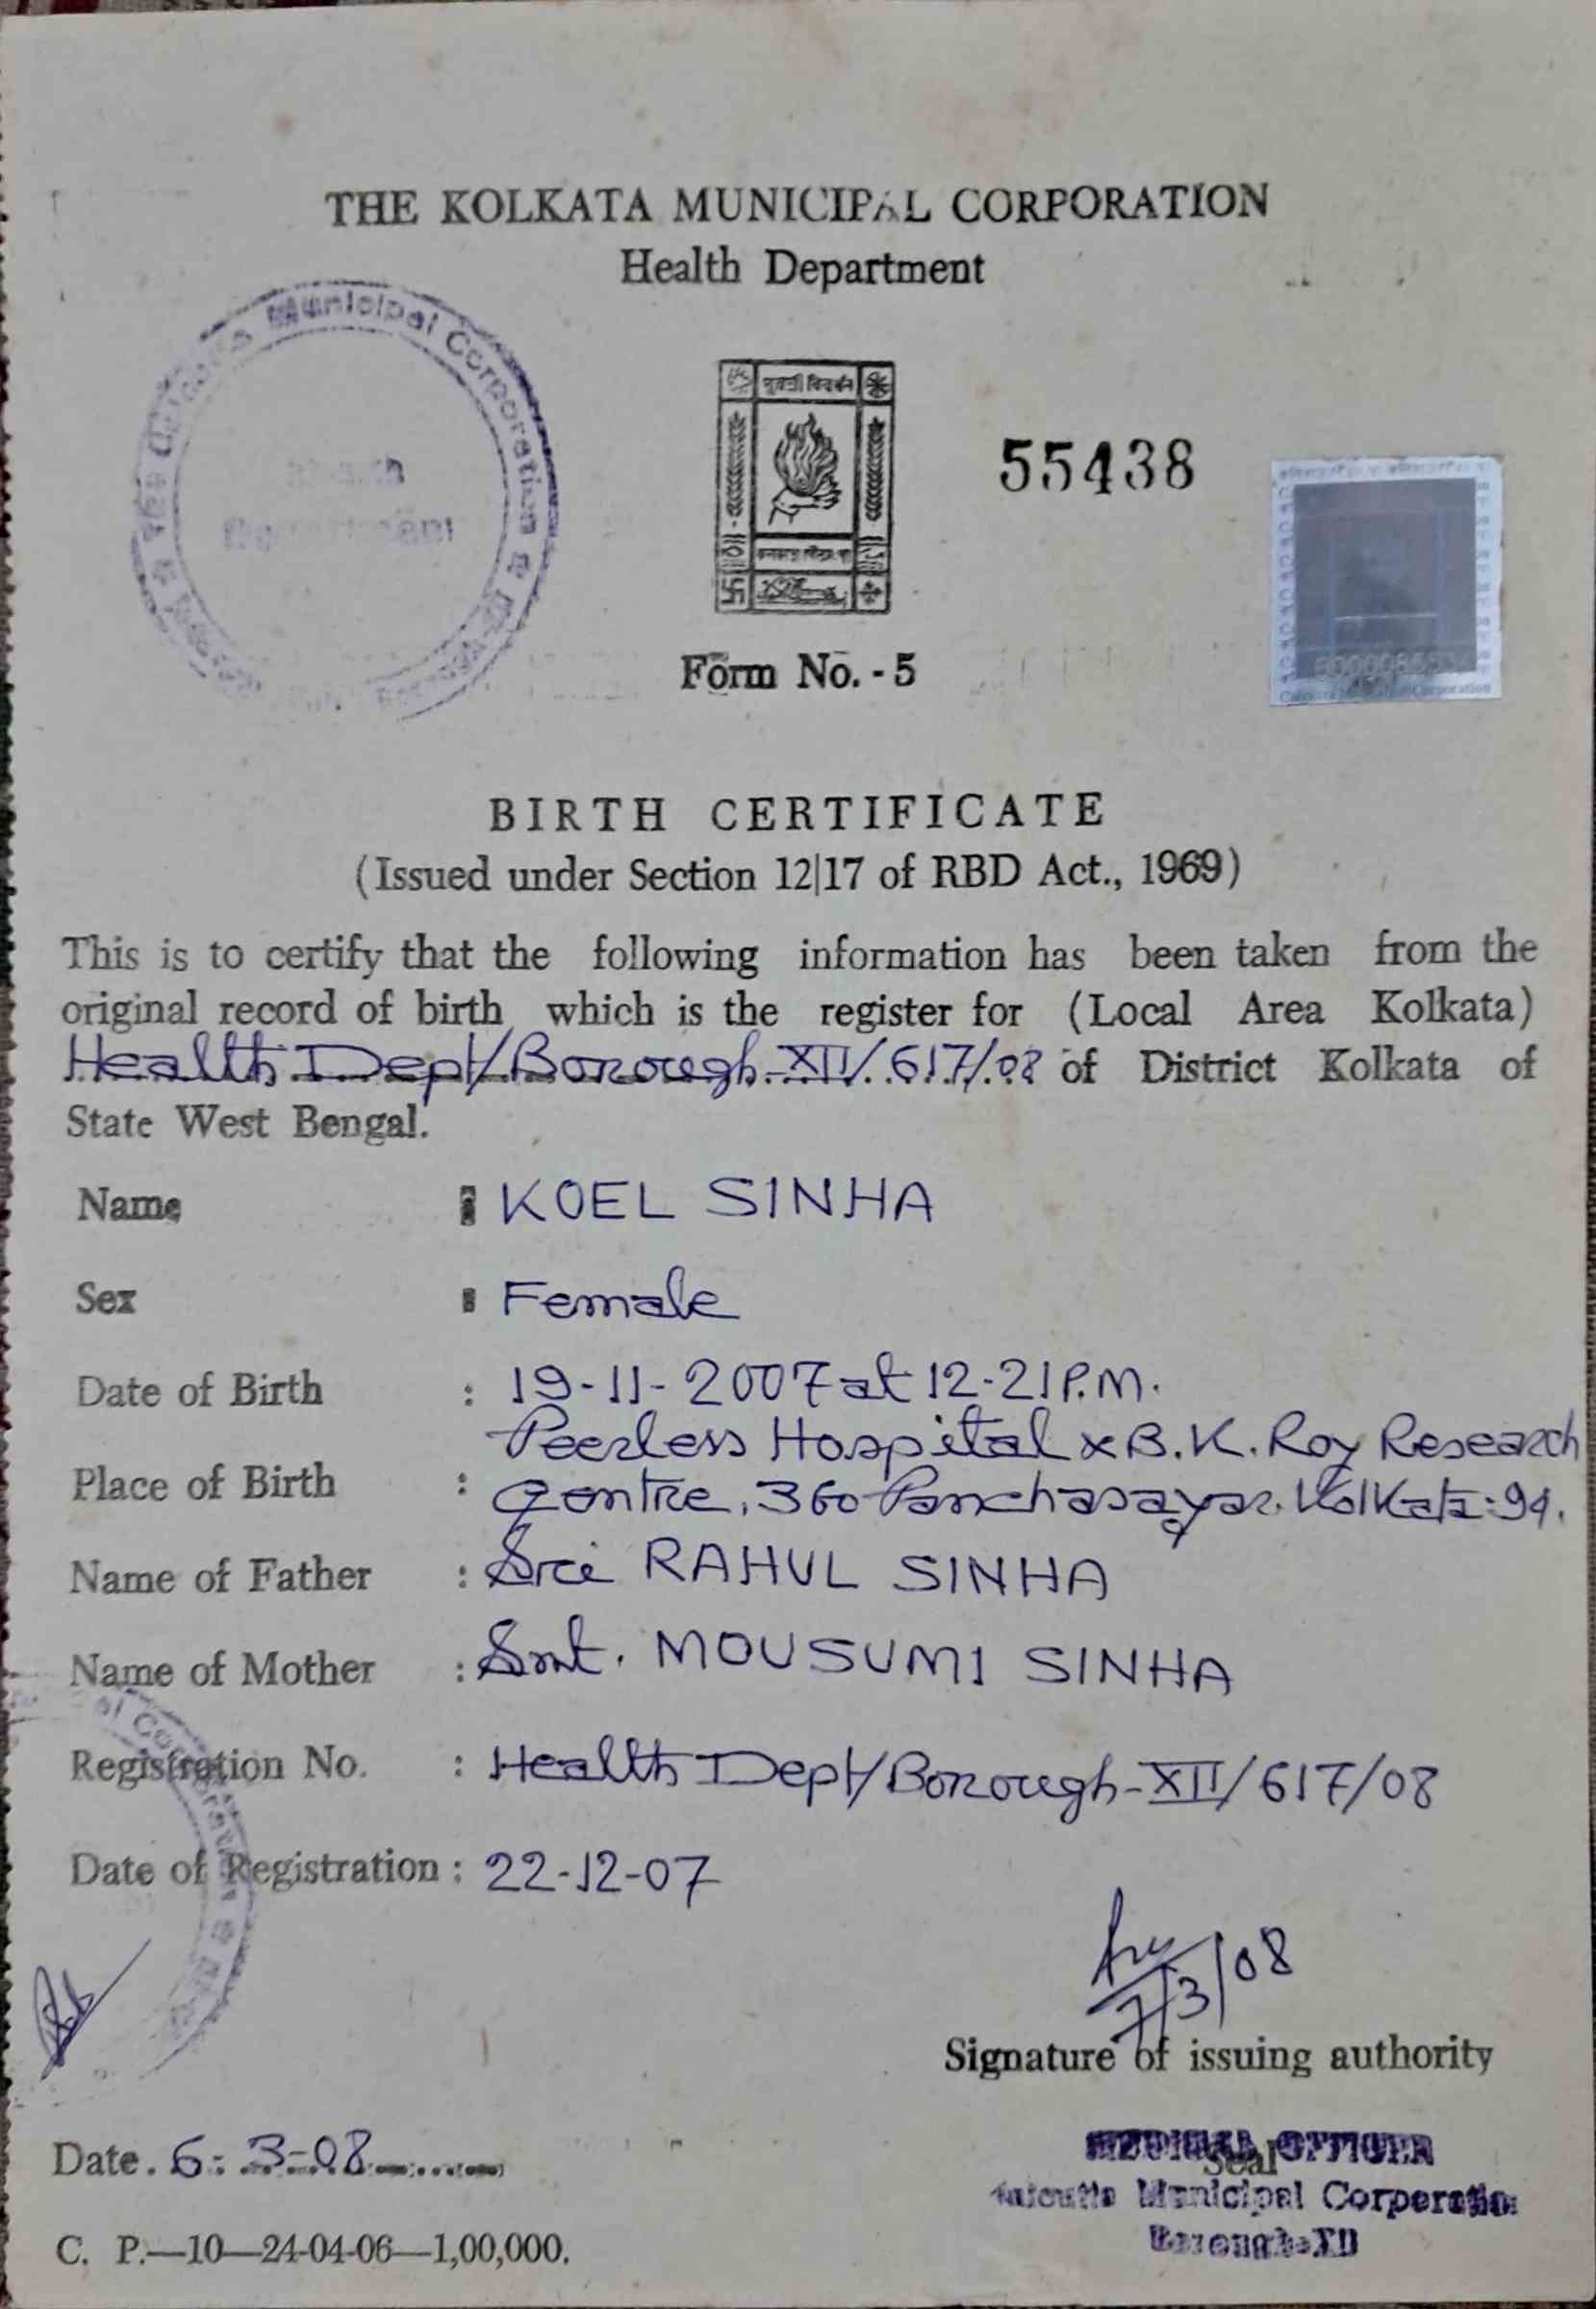 THE KOLKATA MUNICIPAL CORPORATION
Health Department
Municipal Corporation
55438
Form No. - 5
BIRTH CERTIFICATE
(Issued under Section 12|17 of RBD Act., 1969)
This is to certify that the following information has been taken from the
original record of birth which is the register for (Local Area Kolkata)
Health Dept/Borough-XII/617/08 of District Kolkata of
State West Bengal.
Name : KOEL SINHA
Sex : Female
Date of Birth : 19-11-2007 at 12-21 P.M.
Place of Birth : Peerless Hospital x B. K. Roy Research
Centre, 360 Panchasayar. Kolkata-94.
Name of Father : Sri RAHUL SINHA
Name of Mother : Smt. MOUSUMI SINHA
Registration No. : Health Dept/Borough-XII/617/08
Date of Registration : 22-12-07
7/3/08
Signature of issuing authority
Date. 6-3-08
Seal
MEDICAL OFFICER
Calcutta Municipal Corporation
Borough-XII
C. P.—10—24-04-06—1,00,000.